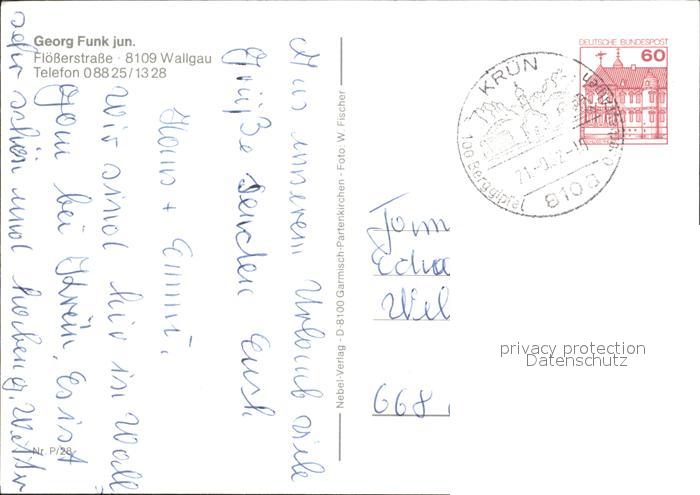 Georg Funk jun.
Flößerstraße · 8109 Wallgau
Telefon 0 88 25 / 13 28
Aus unserem Urlaub viele
Grüße senden Euch
Hans + Emmi.
Wir sind hier in Wall
gau bei Krün. Es ist
sehr schön und haben g. Wetter
Nr. P/28
Nebel-Verlag · D-8100 Garmisch-Partenkirchen · Foto: W. Fischer
DEUTSCHE BUNDESPOST
60
KRÜN
100 Berggipfel
8108
Fam
Wil
668
privacy protection
Datenschutz